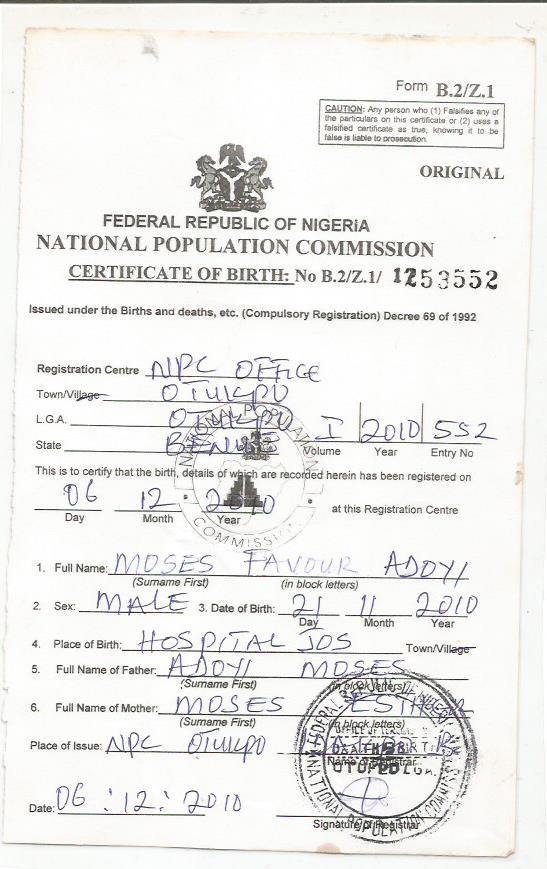 Form B.2/Z.1
CAUTION: Any person who (1) Falsifies any of
the particulars on this certificate or (2) uses a
falsified certificate as true, knowing it to be
false is liable to prosecution.
ORIGINAL
FEDERAL REPUBLIC OF NIGERIA
NATIONAL POPULATION COMMISSION
CERTIFICATE OF BIRTH: No B.2/Z.1/ 1253552
Issued under the Births and deaths, etc. (Compulsory Registration) Decree 69 of 1992
Registration Centre NPC OFFICE
Town/Village OTUKPO
L.G.A. OTUKPO I 2010 552
State BENUE Volume Year Entry No
NATIONAL POPULATION COMMISSION
This is to certify that the birth, details of which are recorded herein has been registered on
06 12 2010 at this Registration Centre
Day Month Year
1. Full Name: MOSES FAVOUR ADOYI
(Surname First) (in block letters)
2. Sex: MALE 3. Date of Birth: 21 11 2010
Day Month Year
4. Place of Birth: HOSPITAL JOS Town/Village
5. Full Name of Father: ADOYI MOSES
(Surname First) (in block letters)
6. Full Name of Mother: MOSES ESTHER
(Surname First) (in block letters)
Place of Issue: NPC OTUKPO
Name of Registrar
Date: 06 : 12 : 2010
Signature of Registrar